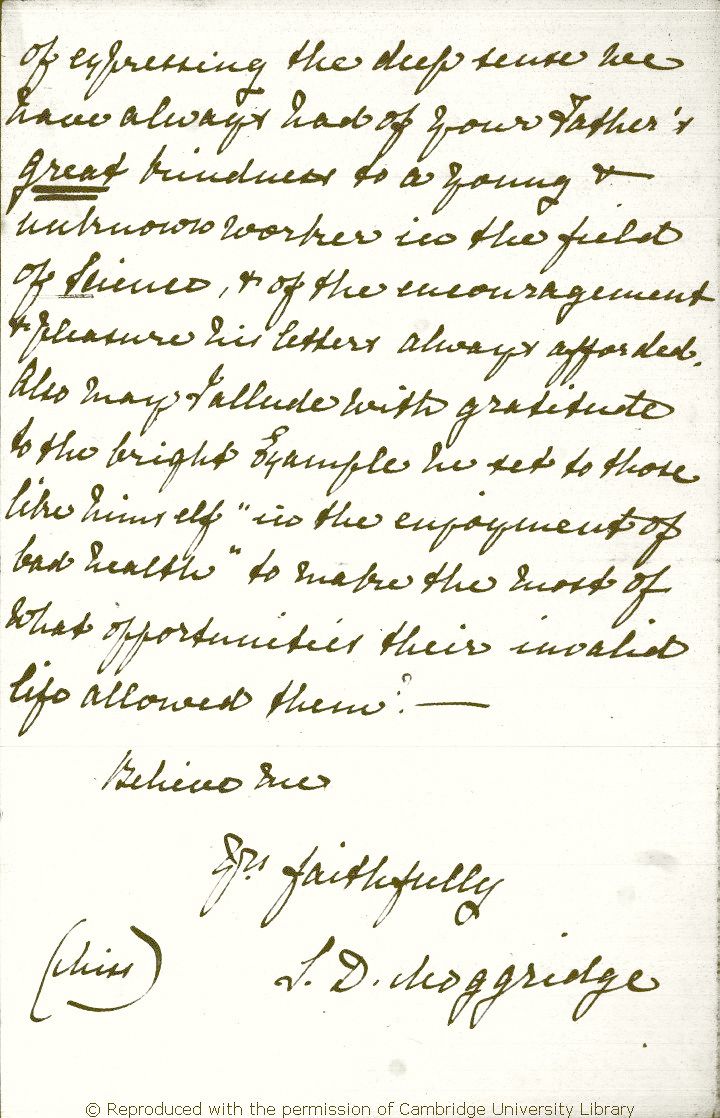 of expressing the deep sense we
have always had of your Father's
great kindness to a young &
unknown worker in the field
of Science, & of the encouragement
& pleasure his letters always afforded.
Also may I allude with gratitude
to the bright Example he set to those
like himself "in the enjoyment of
bad health" to make the most of
what opportunities their invalid
life allowed them? —
Believe me
Yrs faithfully
(Miss) S. D. Moggridge
© Reproduced with the permission of Cambridge University Library